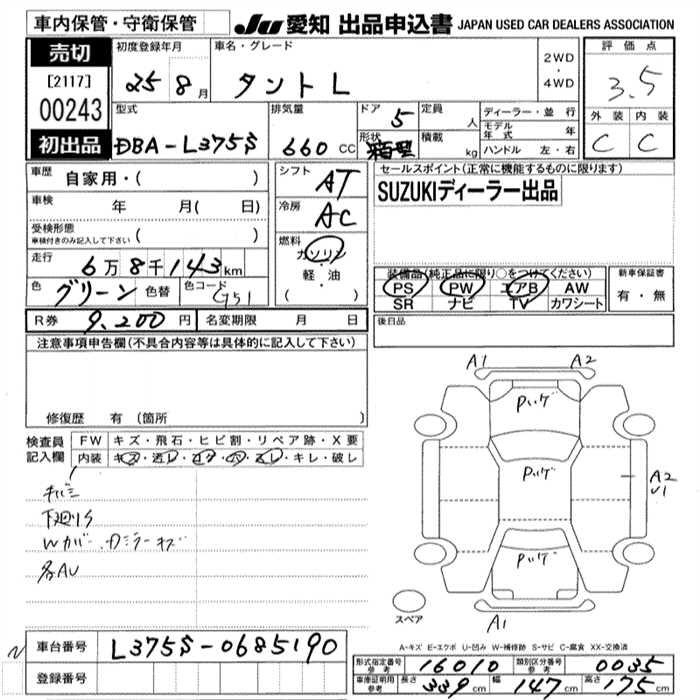 車内保管・守衛保管
JU 愛知 出品申込書 JAPAN USED CAR DEALERS ASSOCIATION
売切
[2117]
00243
初出品
初度登録年月
25 8月
車名・グレード
タントL
2WD
・
4WD
評価点
3.5
外装 内装
C C
型式
DBA-L375S
排気量
660 CC
ドア 5
形状 箱型
定員 人
積載 kg
ディーラー・並行
モデル年式 年
ハンドル 左・右
車歴 自家用・( )
車検 年 月( 日)
受検形態
車検付きのみ記入して下さい ( )
走行 6万8千143km
色 グリーン 色替 色コード G51
シフト AT
冷房 AC
燃料
ガソリン
・
軽・油
( )
セールスポイント(正常に機能するものに限ります)
SUZUKIディーラー出品
装備品(純正品に限り○をつけてください)
PS PW エアB AW
SR ナビ TV カワシート
新車保証書
有・無
R券 9,200円 名変期限 月 日
後日品
注意事項申告欄(不具合内容等は具体的に記入して下さい)
修復歴 有 (箇所 )
検査員記入欄
FW キズ・飛石・ヒビ割・リペア跡・X要
内装 キズ・汚レ・コゲ・穴・スレ・キレ・破レ
下廻りサ
Wカバー・カジラーキズ
各AU
A1 A2
Pハゲ
Pハゲ
A2
U1
Pハゲ
スペア
A1
A-キズ E-エクボ U-凹み W-補修跡 S-サビ C-腐食 XX-交換済
車台番号 L375S-0685190
登録番号
形式指定番号 参考 16010 類別区分番号 参考 0035
車庫証明用 参考 長さ 339cm 幅 147cm 高さ 175cm